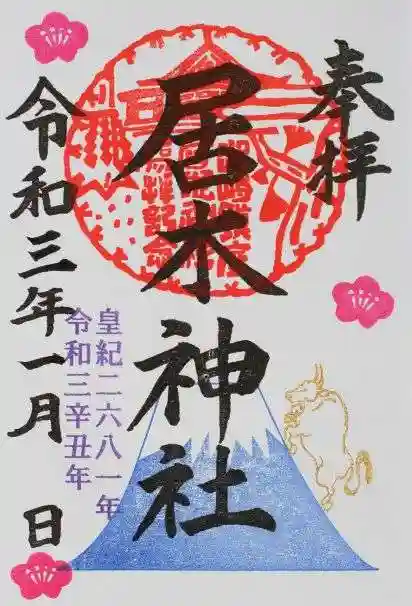 奉拝
居木神社
皇紀二六八一年
令和三辛丑年
令和三年一月　日